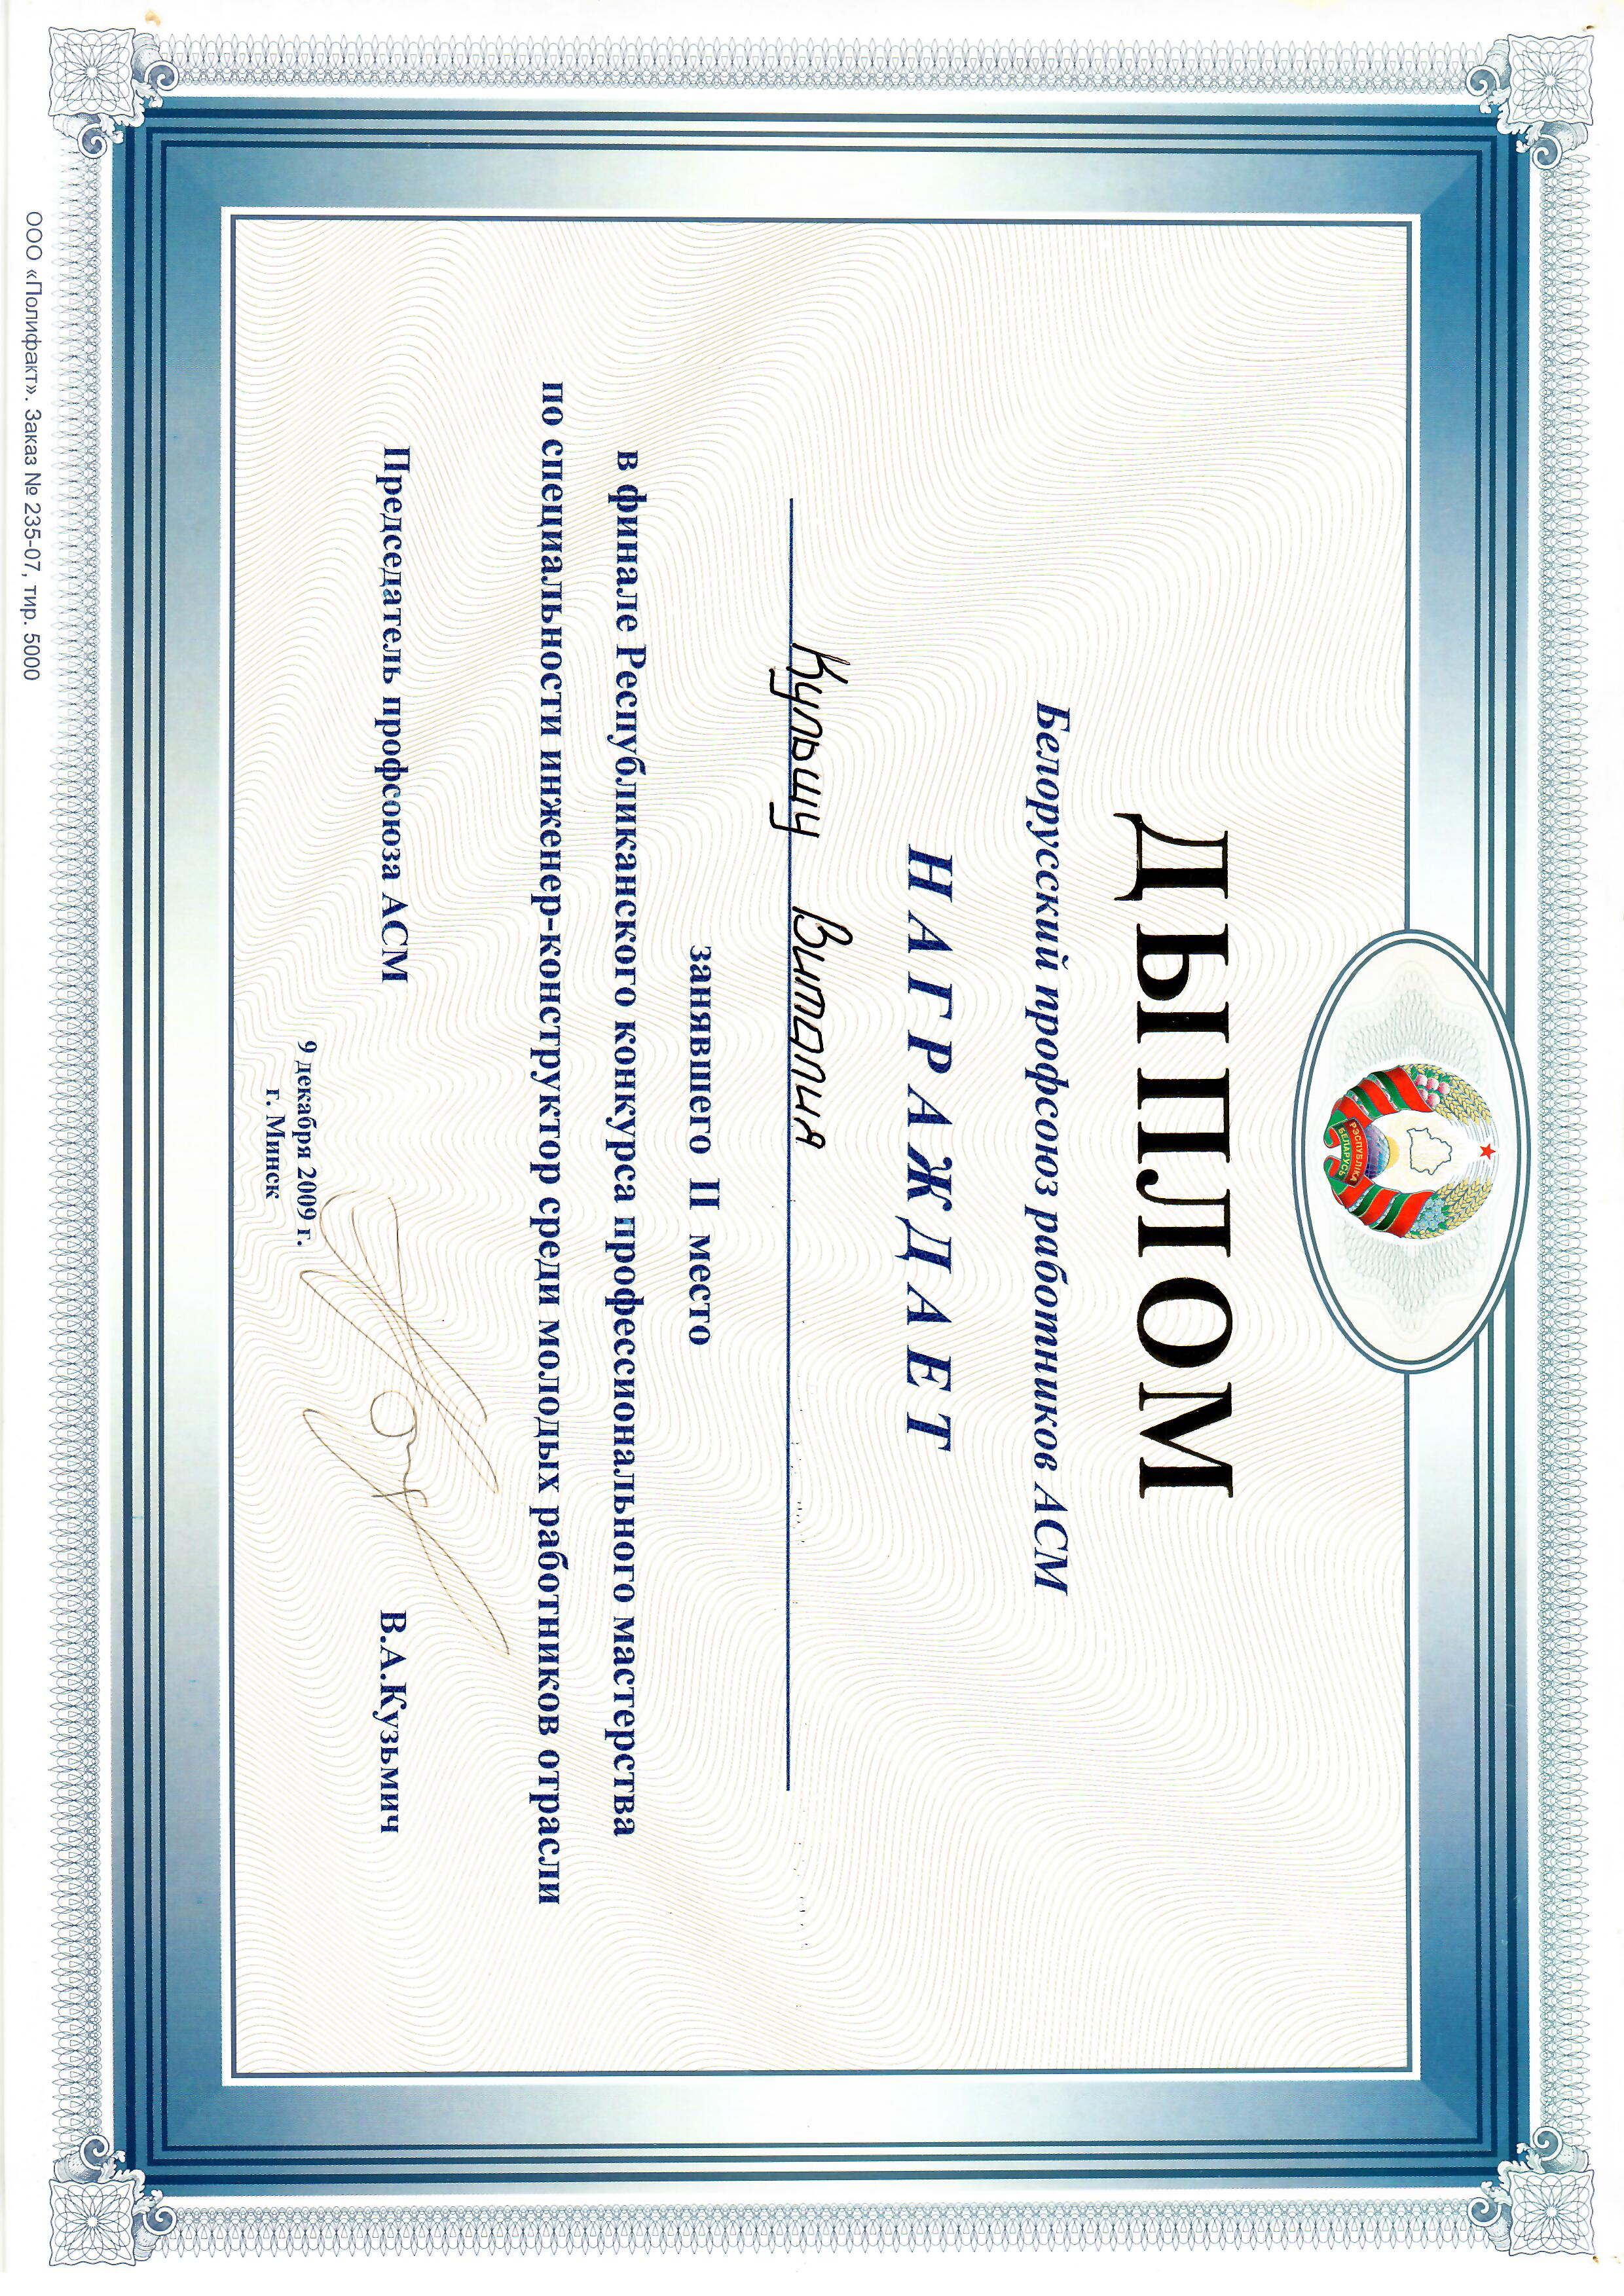 РЭСПУБЛІКА
БЕЛАРУСЬ
ДЫПЛОМ
Белорусский профсоюз работников АСМ
НАГРАЖДАЕТ
Кульшу Виталия
занявшего II место
в финале Республиканского конкурса профессионального мастерства
по специальности инженер-конструктор среди молодых работников отрасли
Председатель профсоюза АСМ В.А.Кузьмич
9 декабря 2009 г.
г. Минск
ООО «Полифакт». Заказ № 235-07, тир. 5000